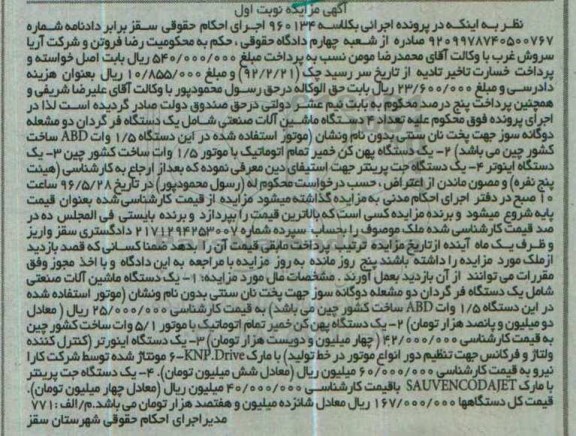 آگهی مزایده نوبت اول
نظر به اینکه در پرونده اجرائی بکلاسه ۹۶۰۱۳۴ اجرای احکام حقوقی سقز برابر دادنامه شماره
۹۲۰۹۹۷۸۷۴۰۵۰۰۷۶۷ صادره از شعبه چهارم دادگاه حقوقی ، حکم به محکومیت رضا فروتن و شرکت آریا
سروش غرب با وکالت آقای محمدرضا مومن نسب به پرداخت مبلغ ۵۴۰/۰۰۰/۰۰۰ ریال بابت اصل خواسته و
پرداخت خسارت تاخیر تادیه از تاریخ سر رسید چک (۹۲/۲/۲۱) و مبلغ ۱۰/۸۵۵/۰۰۰ ریال بعنوان هزینه
دادرسی و مبلغ ۲۳/۶۰۰/۰۰۰ ریال بابت حق الوکاله درحق رسول محمودپور با وکالت آقای علیرضا شریفی و
همچنین پرداخت پنج درصد محکوم به بابت نیم عشر دولتی درحق صندوق دولت صادر گردیده است لذا در
اجرای پرونده فوق محکوم علیه تعداد ۴ دستگاه ماشین آلات صنعتی شامل یک دستگاه فر گردان دو مشعله
دوگانه سوز جهت پخت نان سنتی بدون نام ونشان (موتور استفاده شده در این دستگاه ۱/۵ وات ABD ساخت
کشور چین می باشد) ۲- یک دستگاه پهن کن خمیر تمام اتوماتیک با موتور ۱/۵ وات ساخت کشور چین ۳- یک
دستگاه اینوتر ۴- یک دستگاه جت پرینتر جهت استیفای دین معرفی نموده که بعداز ارجاع به کارشناسی (هیئت
پنج نفره) و مصون ماندن از اعتراض ، حسب درخواست محکوم له (رسول محمودپور) در تاریخ ۹۶/۵/۲۸ ساعت
۱۰ صبح در دفتر اجرای احکام مدنی به مزایده گذاشته میشود مزایده از قیمت کارشناسی شده بعنوان قیمت
پایه شروع میشود و برنده مزایده کسی است که بالاترین قیمت را بپردازد و برنده بایستی فی المجلس ده در
صد قیمت کارشناسی شده ملک موصوف را بحساب سپرده شماره ۲۱۷۱۲۹۴۲۵۳۰۰۷ دادگستری سقز واریز
و ظرف یک ماه آینده ازتاریخ مزایده ترتیب پرداخت مابقی قیمت آن را بدهد ضمنا کسانی که قصد بازدید
ازملک مورد مزایده را داشته باشند پنج روز مانده به روز مزایده با مراجعه به این دادگاه و با اخذ مجوز وفق
مقررات می توانند از آن بازدید بعمل آورند . مشخصات مال مورد مزایده: ۱- یک دستگاه ماشین آلات صنعتی
شامل یک دستگاه فر گردان دو مشعله دوگانه سوز جهت پخت نان سنتی بدون نام ونشان (موتور استفاده شده
در این دستگاه ۱/۵ وات ABD ساخت کشور چین می باشد) به قیمت کارشناسی ۲۵/۰۰۰/۰۰۰ ریال ( معادل
دو میلیون و پانصد هزار تومان) ۲- یک دستگاه پهن کن خمیر تمام اتوماتیک با موتور ۵/۱ وات ساخت کشور چین
به قیمت کارشناسی ۴۲/۰۰۰/۰۰۰ (چهار میلیون و دویست هزار تومان) ۳- یک دستگاه اینورتر (کنترل کننده
ولتاژ و فرکانس جهت تنظیم دور انواع موتور در خط تولید) با مارک KNP.Drive-۶ مونتاژ شده توسط شرکت کارا
نیرو به قیمت کارشناسی ۶۰/۰۰۰/۰۰۰ میلیون ریال (معادل شش میلیون تومان). ۴- یک دستگاه جت پرینتر
با مارک SAUVENCODAJET باقیمت کارشناسی ۴۰/۰۰۰/۰۰۰ میلیون ریال (معادل چهار میلیون تومان).
قیمت کل دستگاهها ۱۶۷/۰۰۰/۰۰۰ ریال معادل شانزده میلیون و هفتصد هزار تومان می باشد.م/الف : ۷۷۱
مدیر اجرای احکام حقوقی شهرستان سقز